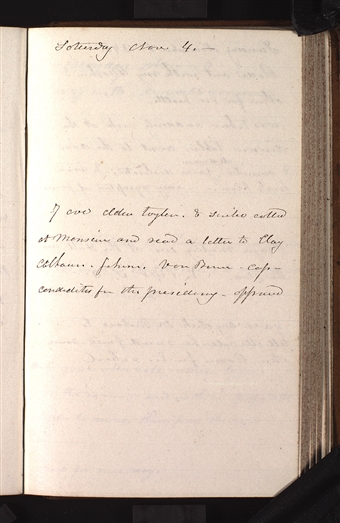 Saturday Nov 4.—
7 eve elder Taylor. & scribe called
at Mansion and read a letter to Clay
Calhoun. Johnson. Van Buren - Cass-
condidites for the presidency - approved